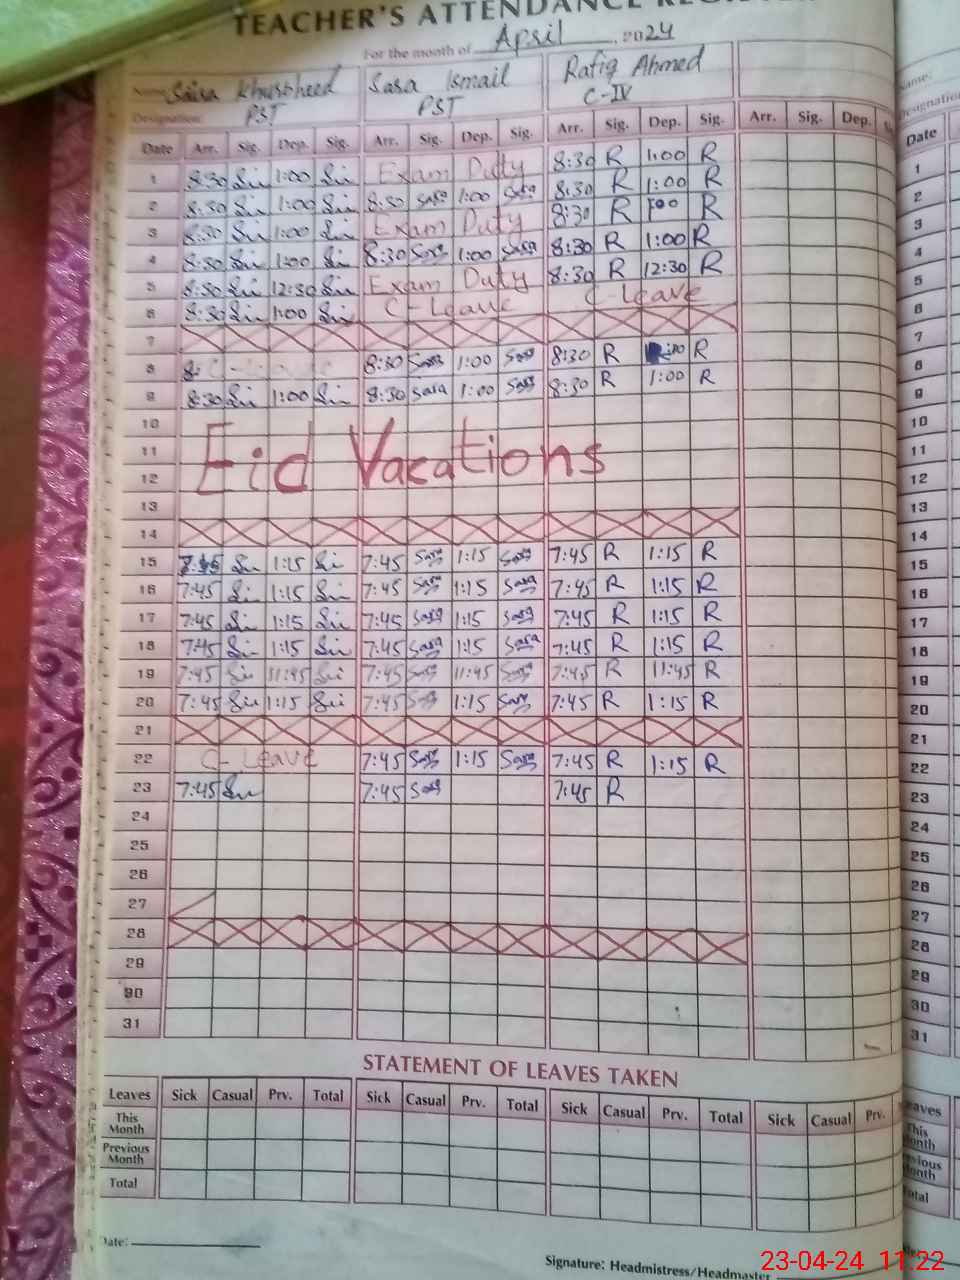 TEACHER'S ATTENDANCE
For the month of April 2024
Name: Khursheed Sara Ismail Rafiq Ahmed
Designation: PST PST C-IV
Date Arr. Sig. Dep. Sig. Arr. Sig. Dep. Sig. Arr. Sig. Dep. Sig. Arr. Sig. Dep.
1 8:30 1:00 Exam Duty 8:30 R 1:00 R
2 8:30 1:00 8:30 Sara 1:00 Sara 8:30 R 1:00 R
3 8:30 1:00 Exam Duty 8:30 R 1:00 R
4 8:30 1:00 8:30 Sara 1:00 Sara 8:30 R 1:00 R
5 8:30 12:30 Exam Duty 8:30 R 12:30 R
6 8:30 1:00 C-Leave C-Leave
7
8 C-Leave 8:30 Sara 1:00 Sara 8:30 R R
9 8:30 1:00 8:30 Sara 1:00 Sara 8:30 R 1:00 R
10
11 Eid Vacations
12
13
14
15 7:45 1:15 7:45 Sara 1:15 Sara 7:45 R 1:15 R
16 7:45 1:15 7:45 Sara 1:15 Sara 7:45 R 1:15 R
17 7:45 1:15 7:45 Sara 1:15 Sara 7:45 R 1:15 R
18 7:45 1:15 7:45 Sara 1:15 Sara 7:45 R 1:15 R
19 7:45 11:45 7:45 Sara 11:45 Sara 7:45 R 11:45 R
20 7:45 1:15 7:45 Sara 1:15 Sara 7:45 R 1:15 R
21
22 C-Leave 7:45 Sara 1:15 Sara 7:45 R 1:15 R
23 7:45 7:45 Sara 7:45 R
24
25
26
27
28
29
30
31
STATEMENT OF LEAVES TAKEN
Leaves Sick Casual Prv. Total Sick Casual Prv. Total Sick Casual Prv. Total Sick Casual Prv.
This Month
Previous Month
Total
Date:
Signature: Headmistress/Headmaster
Name:
Designation
Date
1
2
3
4
5
6
7
8
9
10
11
12
13
14
15
16
17
18
19
20
21
22
23
24
25
26
27
28
29
30
31
23-04-24 11:22